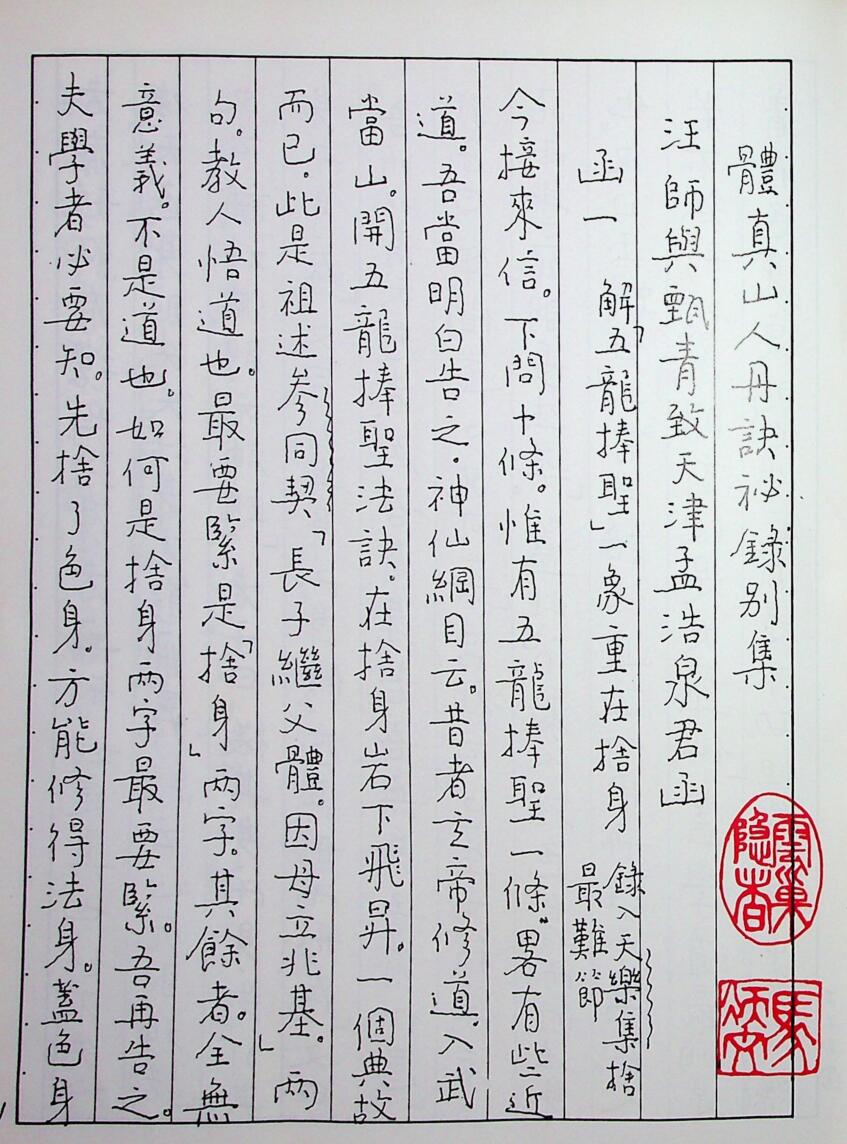 體真山人丹訣祕錄別集
汪師與甄青致天津孟浩泉君函
函一 解「五龍捧聖」一象重在捨身 錄入天樂集捨
最難節
今接來信。下問十條。惟有五龍捧聖一條。畧有些近
道。吾當明白告之。神仙綱目云。昔者玄帝修道。入武
當山。開五龍捧聖法訣。在捨身岩下飛昇。一個典故
而已。此是祖述參同契「長子繼父體。因母立兆基。」兩
句。教人悟道也。最要緊是「捨身」兩字。其餘者。全無
意義。不是道也。如何是捨身兩字最要緊。吾再告之。
夫學者必要知。先捨了色身。方能修得法身。蓋色身
雲巢
隐者
馬